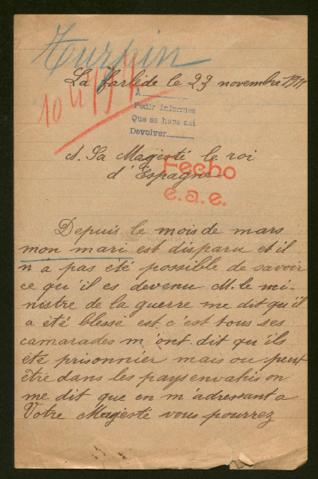 Turpin
La Farlède le 23 novembre 1917
10
A
Pedir informes
Que se hace así
Devolver
A. Sa Magesté le roi
d'Espagne
Fecho
e.a.e.
Depuis le mois de mars
mon mari est disparu et il
n a pas été possible de savoir
ce qu'il es devenu M. le mi-
nistre de la guerre me dit qu'il
a été blessé est c'est tous ses
camarades m'ont dit qu'ils
été prisonnier mais ou peut
être dans les pays envahis on
me dit que en m adressant a
Votre Magesté vous pourrez